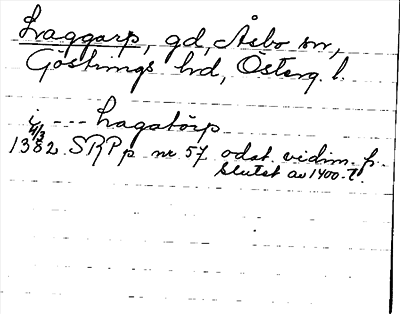 Laggarp, gd, Åsbo sn,
Göstrings hd, Österg. l.
i --- Lagatörp
11/3
1382 SRPp nr 57 odat. vidim. fr.
slutet av 1400-t.